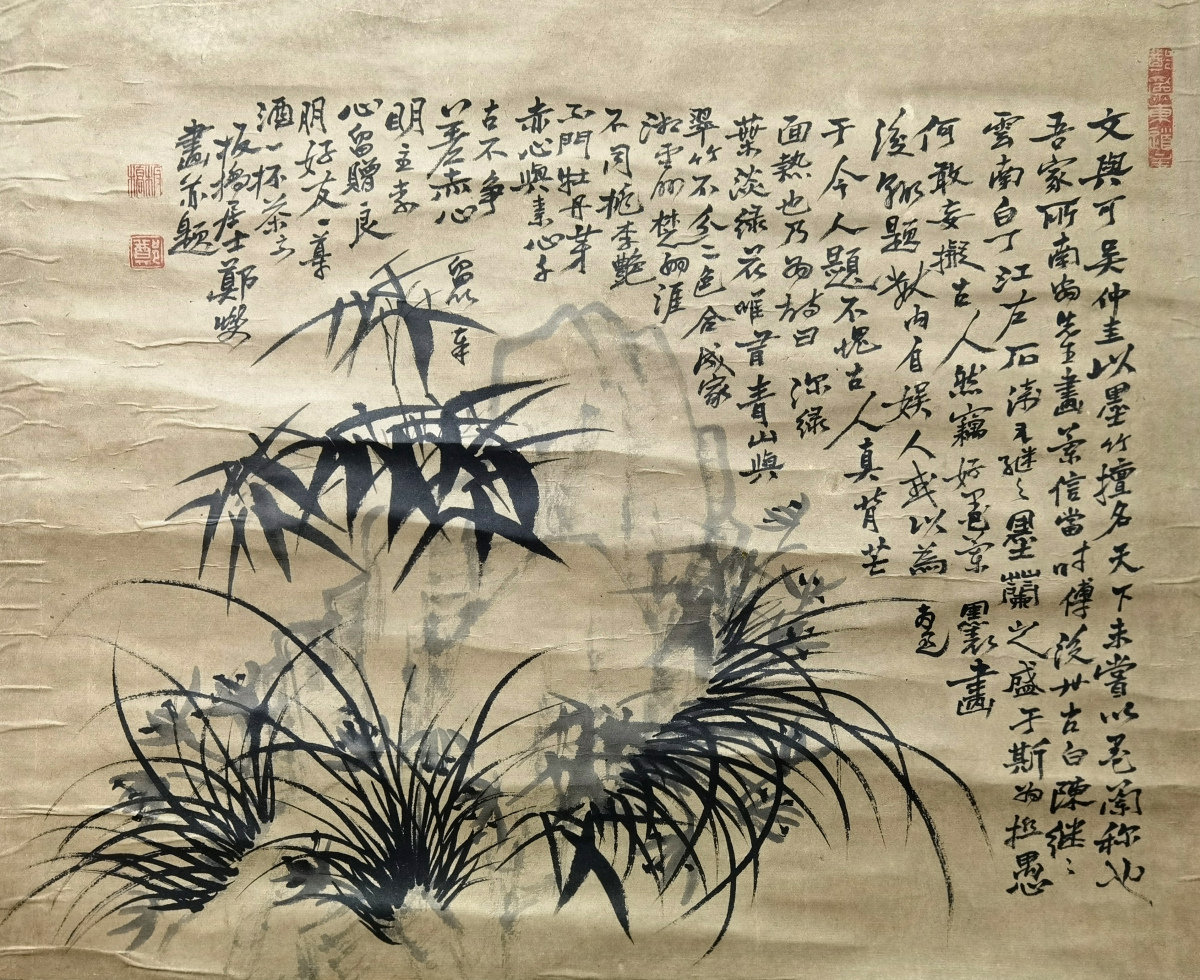 文與可吳仲圭以墨竹擅名天下未嘗以墨蘭稱也
吾家所南翁先生畫蘭信當时傳後世古白陳継〻
雲南白丁江左石濤継〻墨蘭之盛于斯為極愚
何敢妄擬古人然竊好墨蘭 畫
後輒題數内自娱人或以為
于今人題不愧古人真背芒
面熱也乃為詩曰 深绿
葉淡绿花唯昔青山與
翠竹不分二色合成家
湘雲雨楚涯
不同桃李艷
不鬥牡丹芽
赤心與素心子
古不争
以差赤心
明主素
心留贈良
朋好友一尊
酒一杯茶
板橋居士鄭燮
畫并題
留以